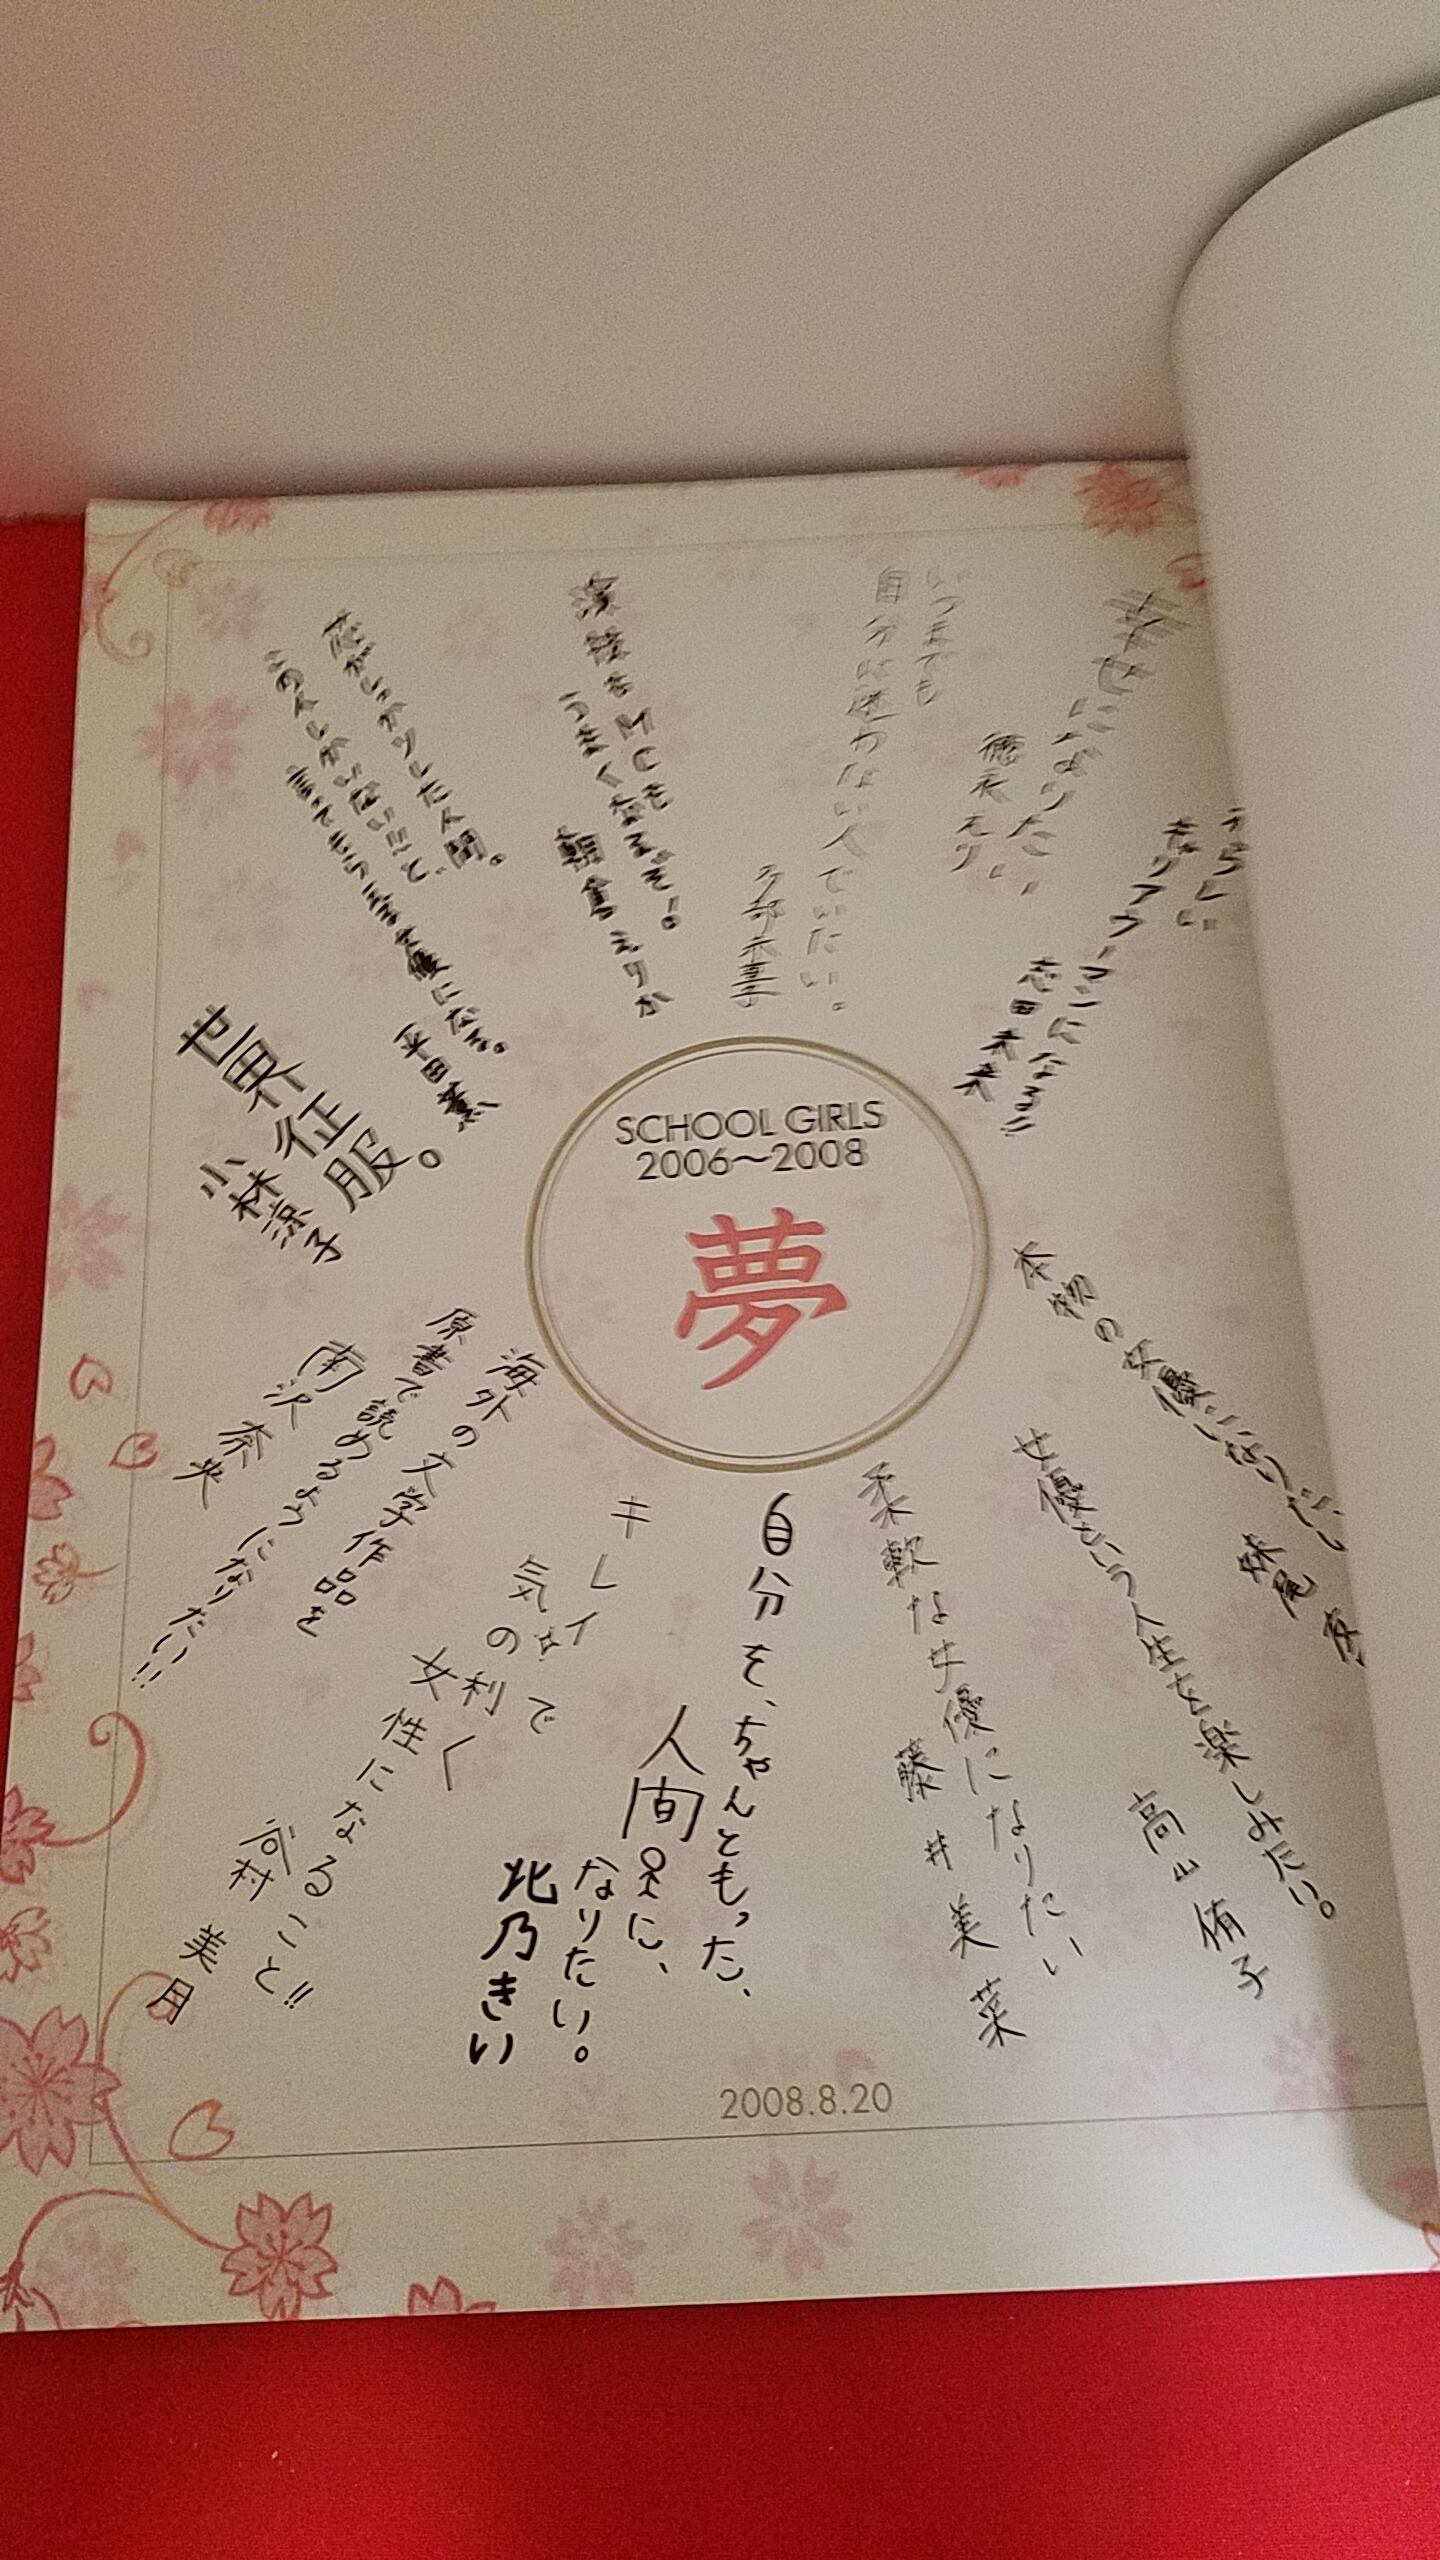 幸せになりたい
徳永えり
いつまでも
自分に迷わない人でいたい。
多部未華子
演技もMCも
うまくなるぞー。
朝倉えりか
この人しかいないと、
言ってもらえる女優になる。
平田薫
世界征服。
小林涼子
キャリアウーマンになる!!
志田未来
SCHOOL GIRLS
2006〜2008
夢
本物の女優になりたい
女優という人生を楽しみたい。
高山侑子
柔軟な女優になりたい
藤井美菜
自分を、ちゃんともった、
人間に、
なりたい。
北乃きい
キレイで
気の利く
女性になること!!
高村美月
海外の文学作品を
原書で読めるようになりたい!!
南沢奈央
2008.8.20